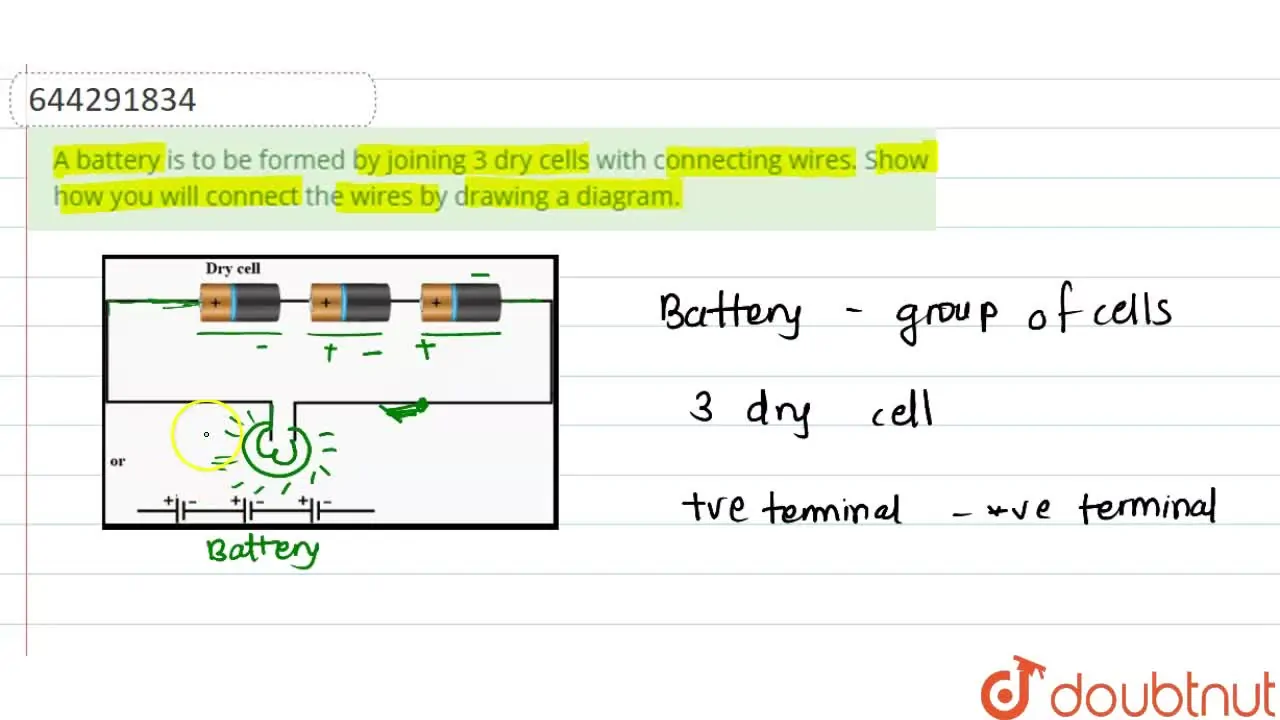 644291834
A battery is to be formed by joining 3 dry cells with connecting wires. Show
how you will connect the wires by drawing a diagram.
Dry cell
+ + + -
- + - +
or
+ - + - + -
Battery
Battery - group of cells
3 dry cell
+ve terminal - +ve terminal
doubtnut